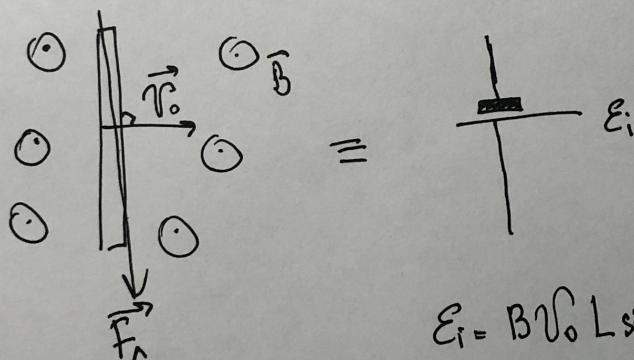 B⃗
v⃗₀
≡
ℰi
F⃗л
ℰi = B v₀ L s